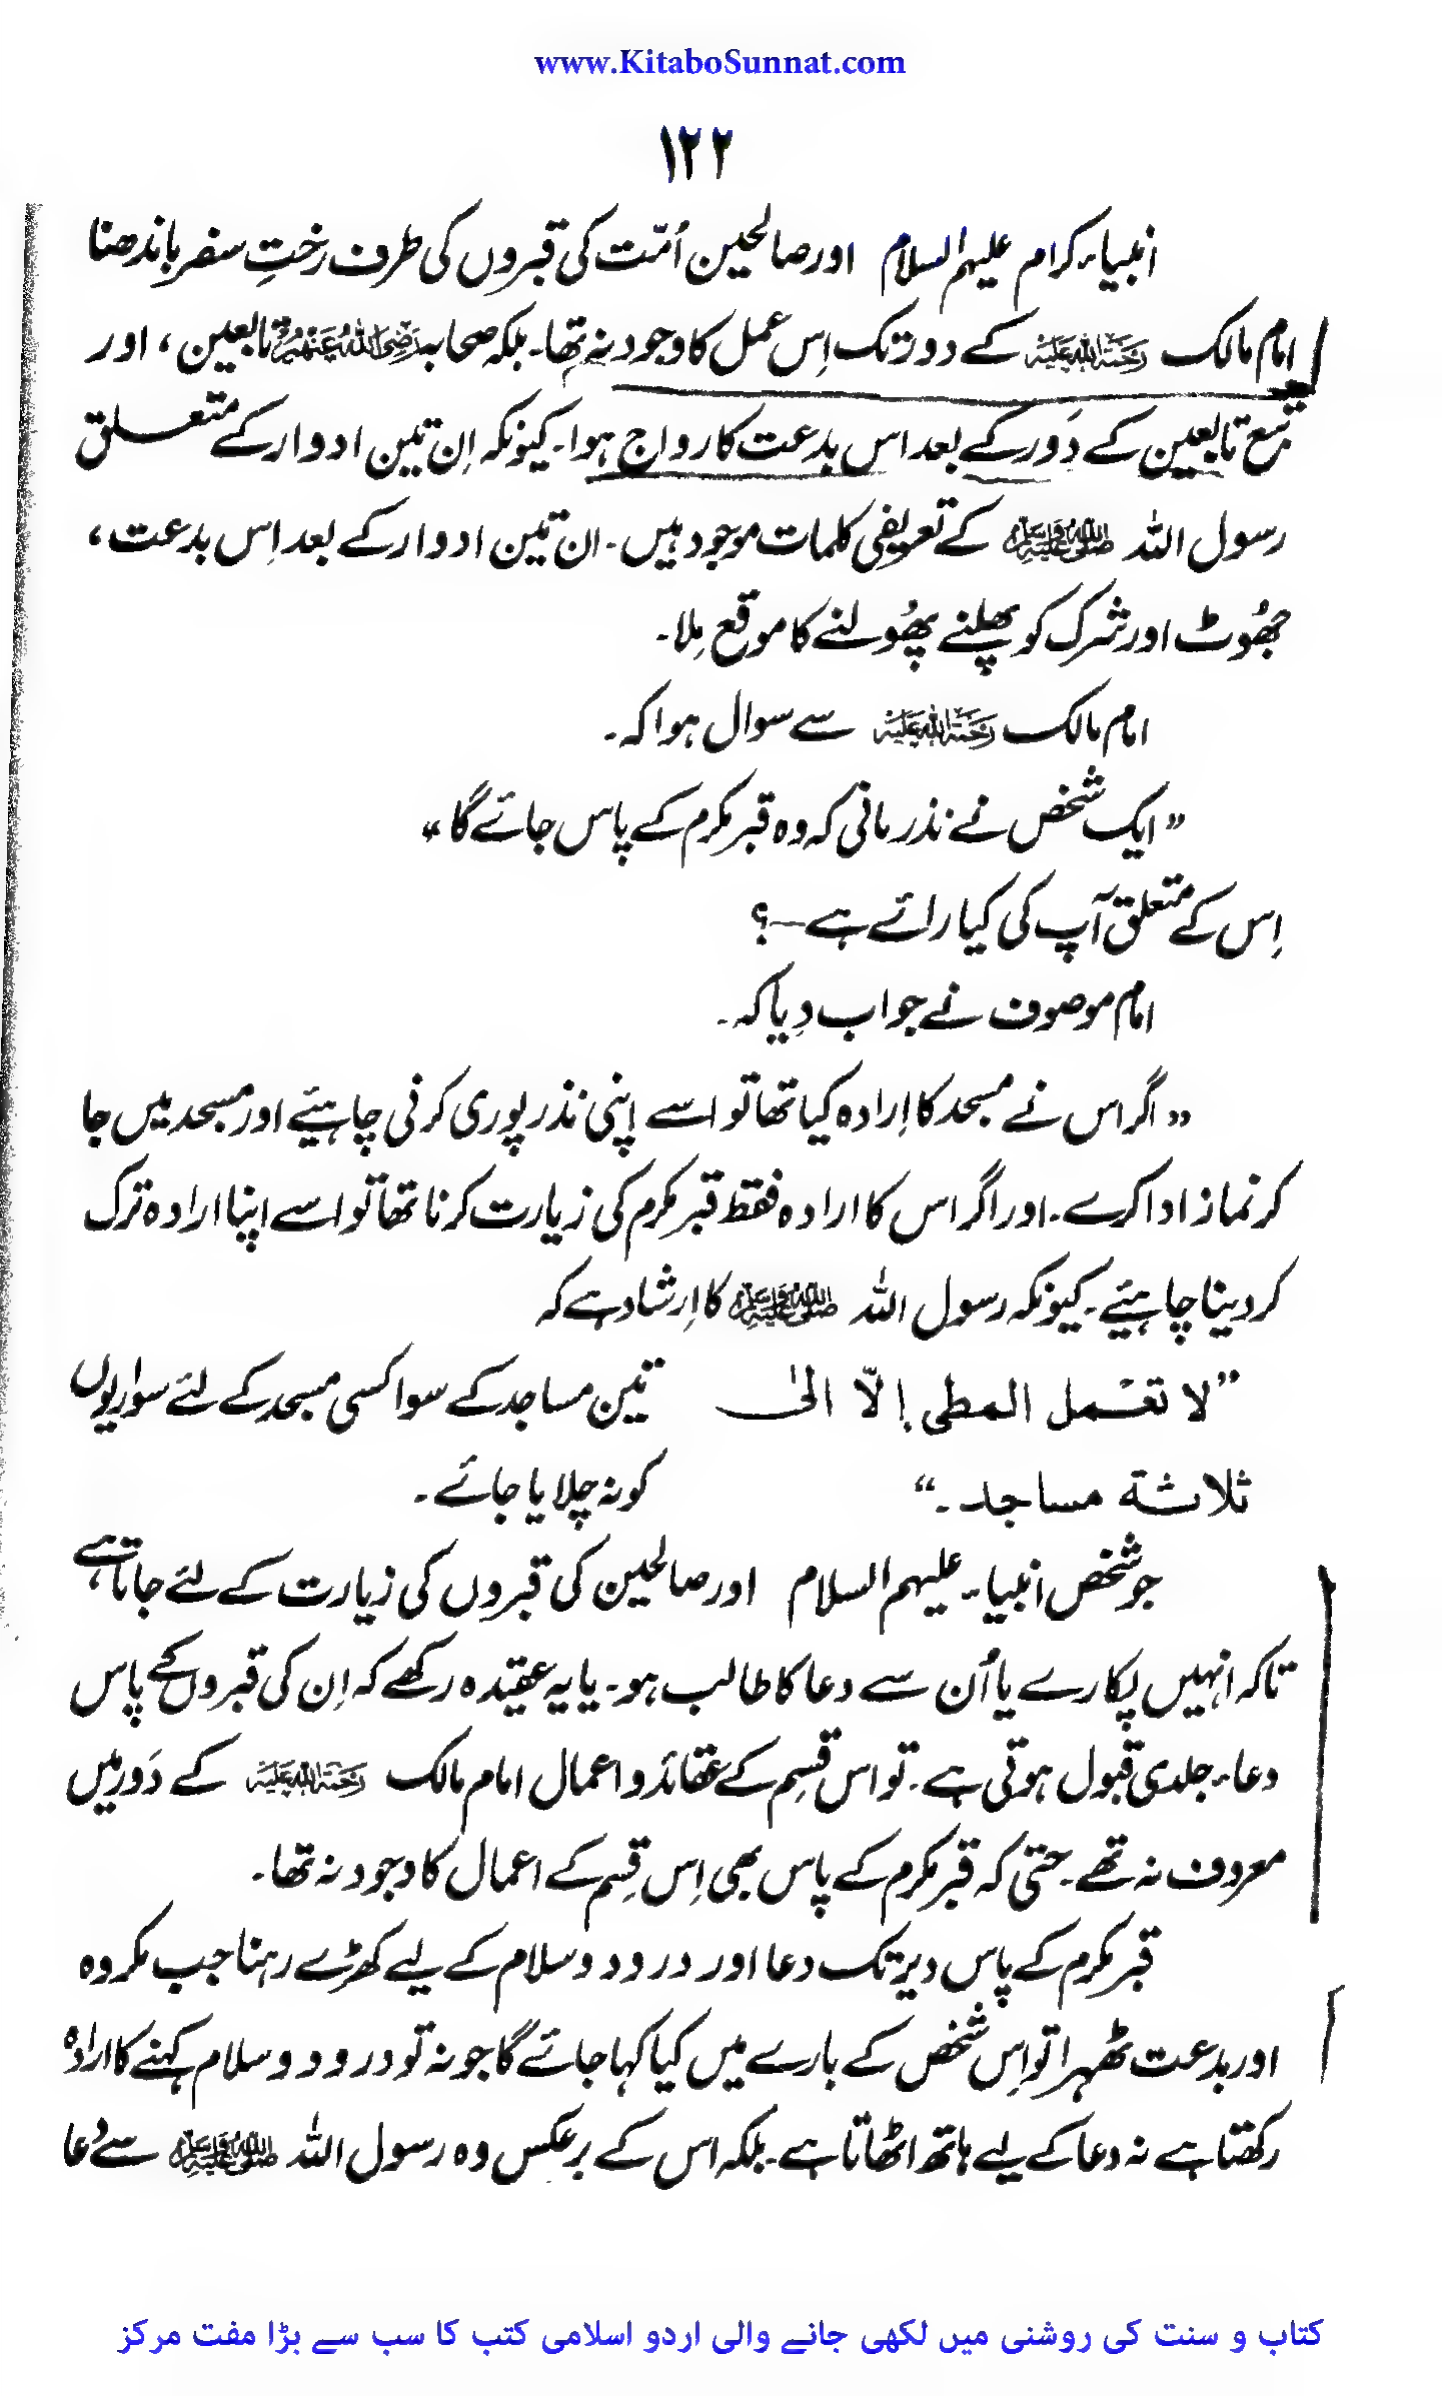 www.KitaboSunnat.com
۱۲۲
انبیاء کرام علیہم السلام اور صالحین اُمّت کی قبروں کی طرف رختِ سفر باندھنا
امام مالک رحمۃ اللہ علیہ کے دور تک اِس عمل کا وجود نہ تھا۔ بلکہ صحابہ رضی اللہ عنہم تابعین، اور
تبع تابعین کے دَور کے بعد اس بدعت کا رواج ہوا۔ کیونکہ اِن تین ادوار کے متعلق
رسول اللہ ﷺ کے تعریفی کلمات موجود ہیں۔ ان تین ادوار کے بعد اِس بدعت،
جھُوٹ اور شرک کو پھلنے پھُولنے کا موقع مِلا۔
امام مالک رحمۃ اللہ علیہ سے سوال ہوا کہ۔
”ایک شخص نے نذر مانی کہ وہ قبر مکرم کے پاس جائے گا“
اِس کے متعلق آپ کی کیا رائے ہے—؟
امام موصوف نے جواب دِیا کہ۔
”اگر اس نے مسجد کا اِرادہ کیا تھا تو اسے اپنی نذر پوری کرنی چاہئیے اور مسجد میں جا
کر نماز ادا کرے۔ اور اگر اس کا ارادہ فقط قبر مکرم کی زیارت کرنا تھا تو اسے اپنا ارادہ ترک
کر دینا چاہئیے۔ کیونکہ رسول اللہ ﷺ کا اِرشاد ہے کہ
”لا تعمل المطی إلّا الیٰ تین مساجد کے سوا کسی مسجد کے لئے سواریوں
ثلاثة مساجد۔“ کو نہ چلایا جائے۔
جو شخص انبیاء علیہم السلام اور صالحین کی قبروں کی زیارت کے لئے جاتا ہے
تاکہ انہیں پکارے یا اُن سے دعا کا طالب ہو۔ یا یہ عقیدہ رکھے کہ اِن کی قبروں کے پاس
دعاء جلدی قبول ہوتی ہے۔ تو اس قسم کے عقائد و اعمال امام مالک رحمۃ اللہ علیہ کے دَور میں
معروف نہ تھے۔ حتیٰ کہ قبر مکرم کے پاس بھی اِس قِسم کے اعمال کا وجود نہ تھا۔
قبر مکرم کے پاس دیر تک دعا اور درود و سلام کے لیے کھڑے رہنا جب مکروہ
اور بدعت ٹھہرا تو اِس شخص کے بارے میں کیا کہا جائے گا جو نہ تو درود و سلام کہنے کا ارادہ
رکھتا ہے نہ دعا کے لیے ہاتھ اٹھاتا ہے۔ بلکہ اس کے برعکس وہ رسول اللہ ﷺ سے دُعا
کتاب و سنت کی روشنی میں لکھی جانے والی اردو اسلامی کتب کا سب سے بڑا مفت مرکز